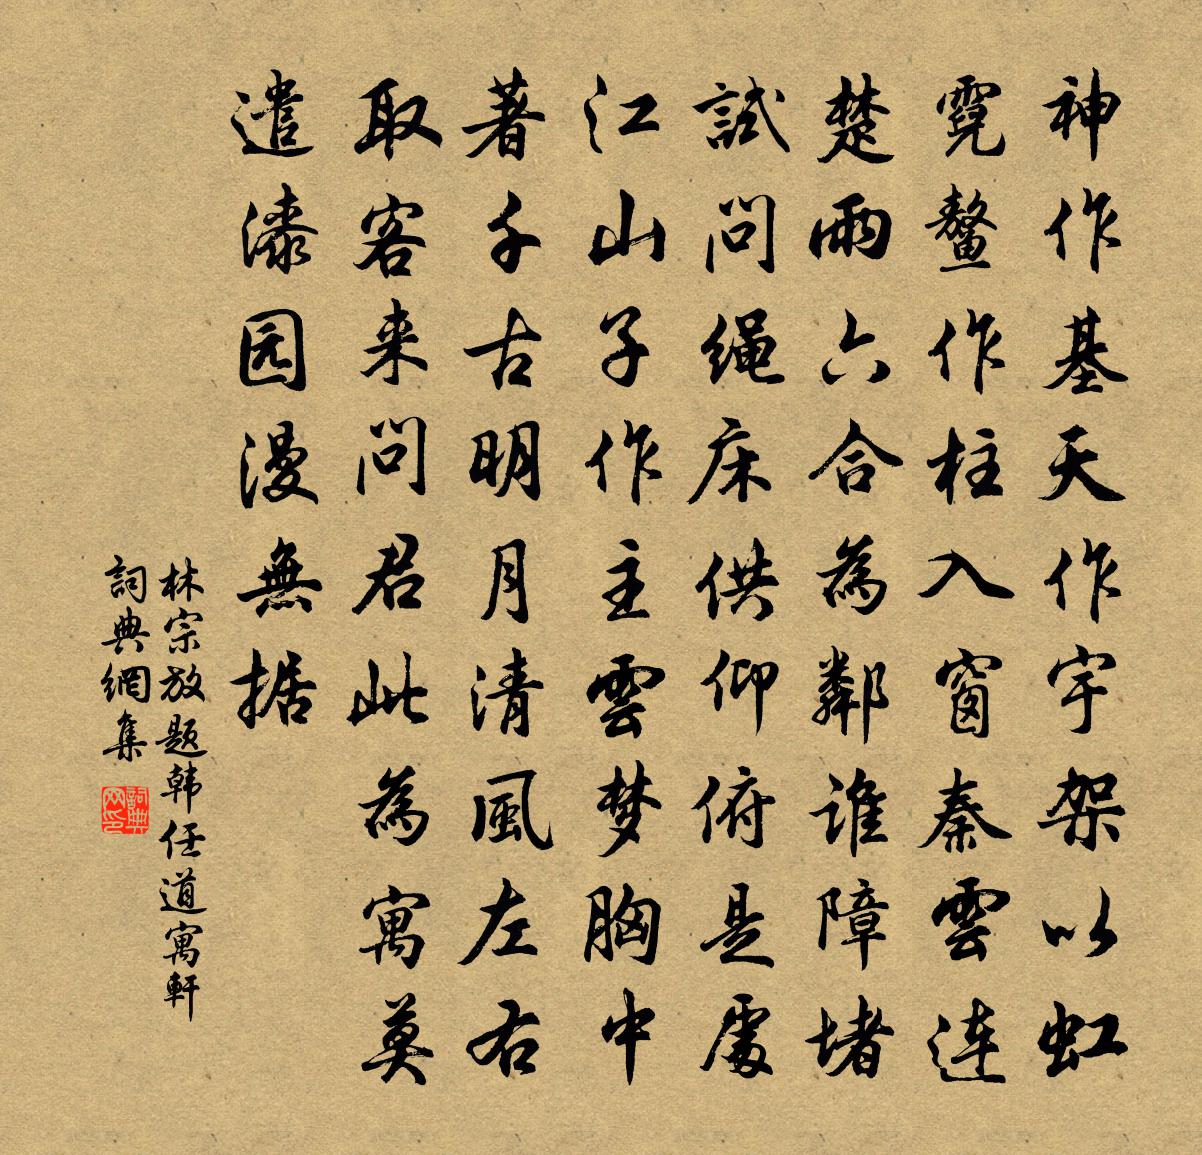 神作基天作宇架以虹
霓鳌作柱入窗秦雲连
楚雨六合為鄰谁障堵
試问绳床供仰俯是處
江山子作主雲梦胸中
著千古明月清風左右
取客来问君此為寓莫
遣漆园漫無据
林宗放题韩任道寓軒
詞典網集
詞典网印